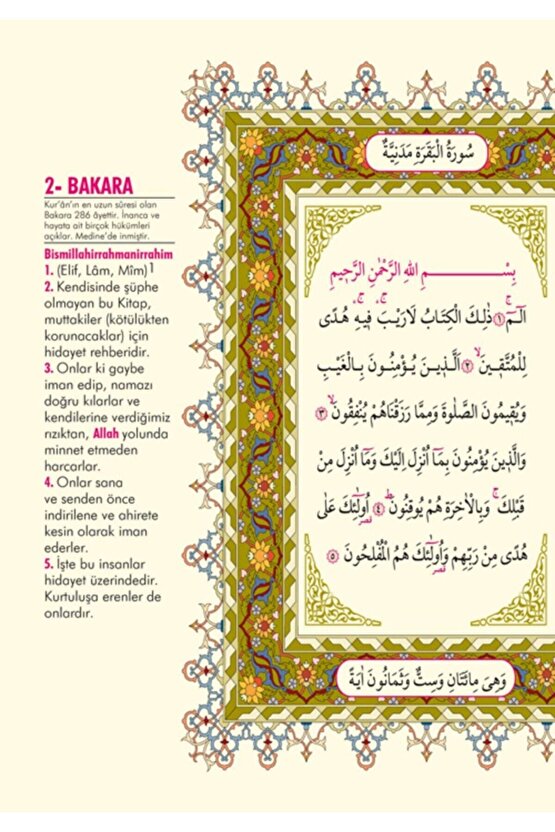 2- BAKARA
Kur'ân'ın en uzun sûresi olan
Bakara 286 âyettir. İnanca ve
hayata ait birçok hükümleri
açıklar. Medine'de inmiştir.
Bismillahirrahmanirrahim
1. (Elif, Lâm, Mîm)1
2. Kendisinde şüphe
olmayan bu Kitap,
muttakiler (kötülükten
korunacaklar) için
hidayet rehberidir.
3. Onlar ki gaybe
iman edip, namazı
doğru kılarlar ve
kendilerine verdiğimiz
rızıktan, Allah yolunda
minnet etmeden
harcarlar.
4. Onlar sana
ve senden önce
indirilene ve ahirete
kesin olarak iman
ederler.
5. İşte bu insanlar
hidayet üzerindedir.
Kurtuluşa erenler de
onlardır.
سُورَةُ الْبَقَرَةِ مَدَنِيَّةٌ
بِسْمِ اللّٰهِ الرَّحْمٰنِ الرَّحٖيمِ
الٓمٓ ۚ ﴿١﴾ ذٰلِكَ الْكِتَابُ لَا رَيْبَ ۚۛ فٖيهِ ۚۛ هُدًى
لِلْمُتَّقٖينَ ۙ ﴿٢﴾ اَلَّذٖينَ يُؤْمِنُونَ بِالْغَيْبِ
وَيُقٖيمُونَ الصَّلٰوةَ وَمِمَّا رَزَقْنَاهُمْ يُنْفِقُونَ ۙ ﴿٣﴾
وَالَّذٖينَ يُؤْمِنُونَ بِمَٓا اُنْزِلَ اِلَيْكَ وَمَٓا اُنْزِلَ مِنْ
قَبْلِكَ ۚ وَبِالْاٰخِرَةِ هُمْ يُوقِنُونَ ۜ ﴿٤﴾ اُو۬لٰٓئِكَ عَلٰى
هُدًى مِنْ رَبِّهِمْ وَاُو۬لٰٓئِكَ هُمُ الْمُفْلِحُونَ ﴿٥﴾
وَهِيَ مِائَتَانِ وَسِتٌّ وَثَمَانُونَ اٰيَةً